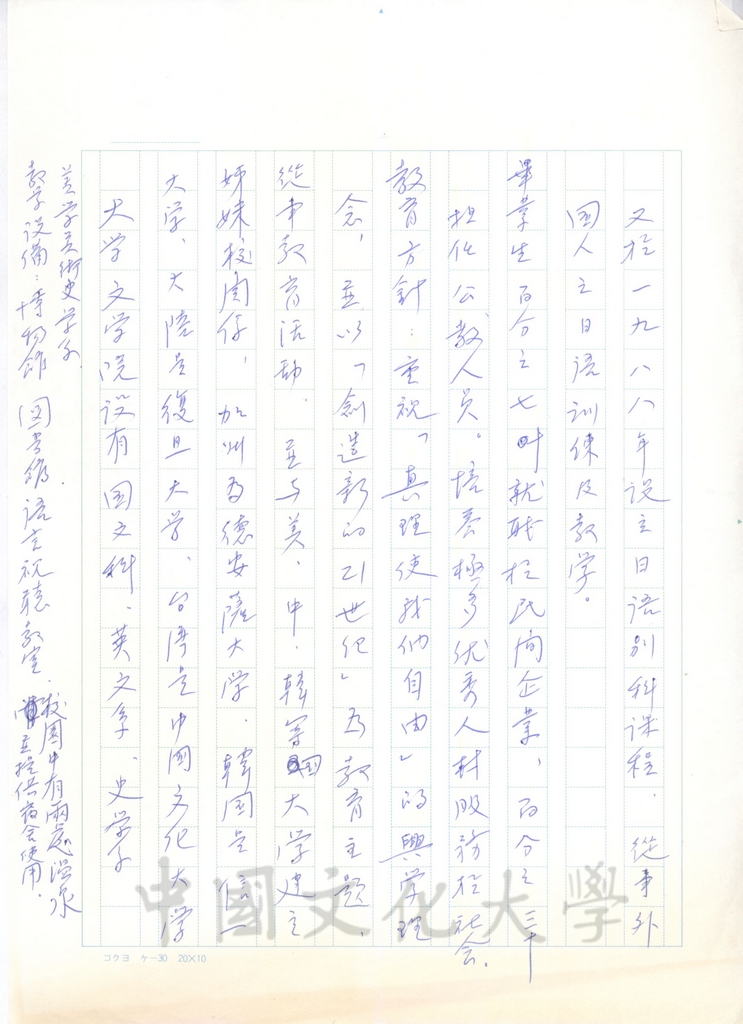 又於一九八八年設立日语別科课程．從事外
國人之日语訓練及教学。
畢業生百分之七叶就职於民间企業，百分之三十
担任公教人员。培养極多优秀人材服務於社会．
教育方針：重視「真理使我們自由」的興学理
念，並以「創造新的21世纪」為教育主題，
從事教育活動．並与美．中．韓等国大学建立
姊妹校関係，加州為德安薩大学．韓国是信一
大学、大陸是復旦大学、台湾是中國文化大学
大学文学院設有国文科、英文系、史学系
美学美術史学系．
教学設備：博物館 図書館．语言視聽教室．
校園中有兩處温泉
並提供宿舍使用．
コクヨ ケ-30 20×10
中國文化大學